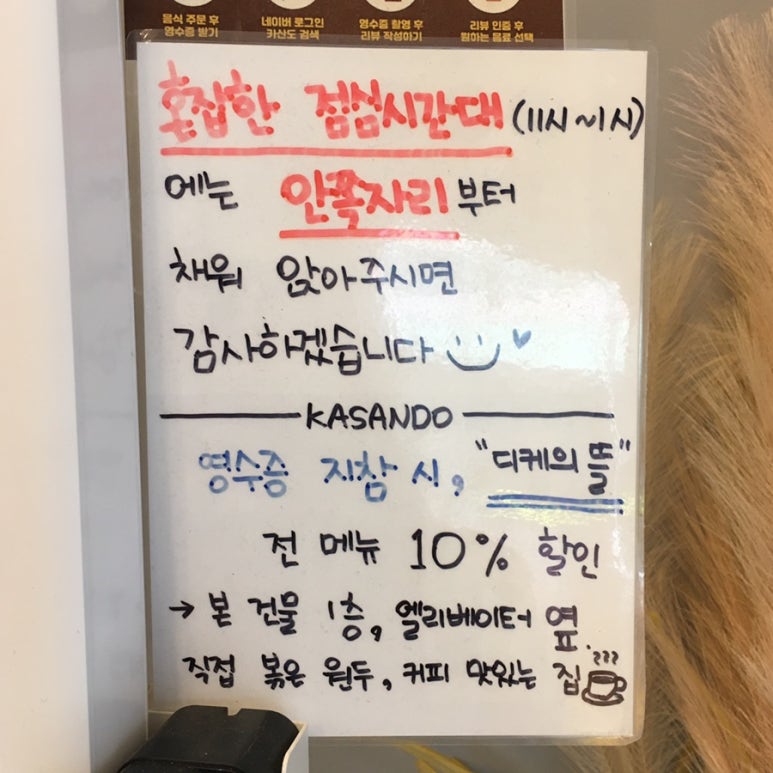 음식 주문 후 네이버 로그인 영수증 촬영 후 리뷰 인증 후
영수증 받기 카산도 검색 리뷰 작성하기 원하는 음료 선택
혼잡한 점심시간대 (11시~1시)
에는 안쪽자리부터
채워 앉아주시면
감사하겠습니다
KASANDO
영수증 지참 시, "디케의 뜰"
전 메뉴 10% 할인
→ 본 건물 1층, 엘리베이터 옆.
직접 볶은 원두, 커피 맛있는 집